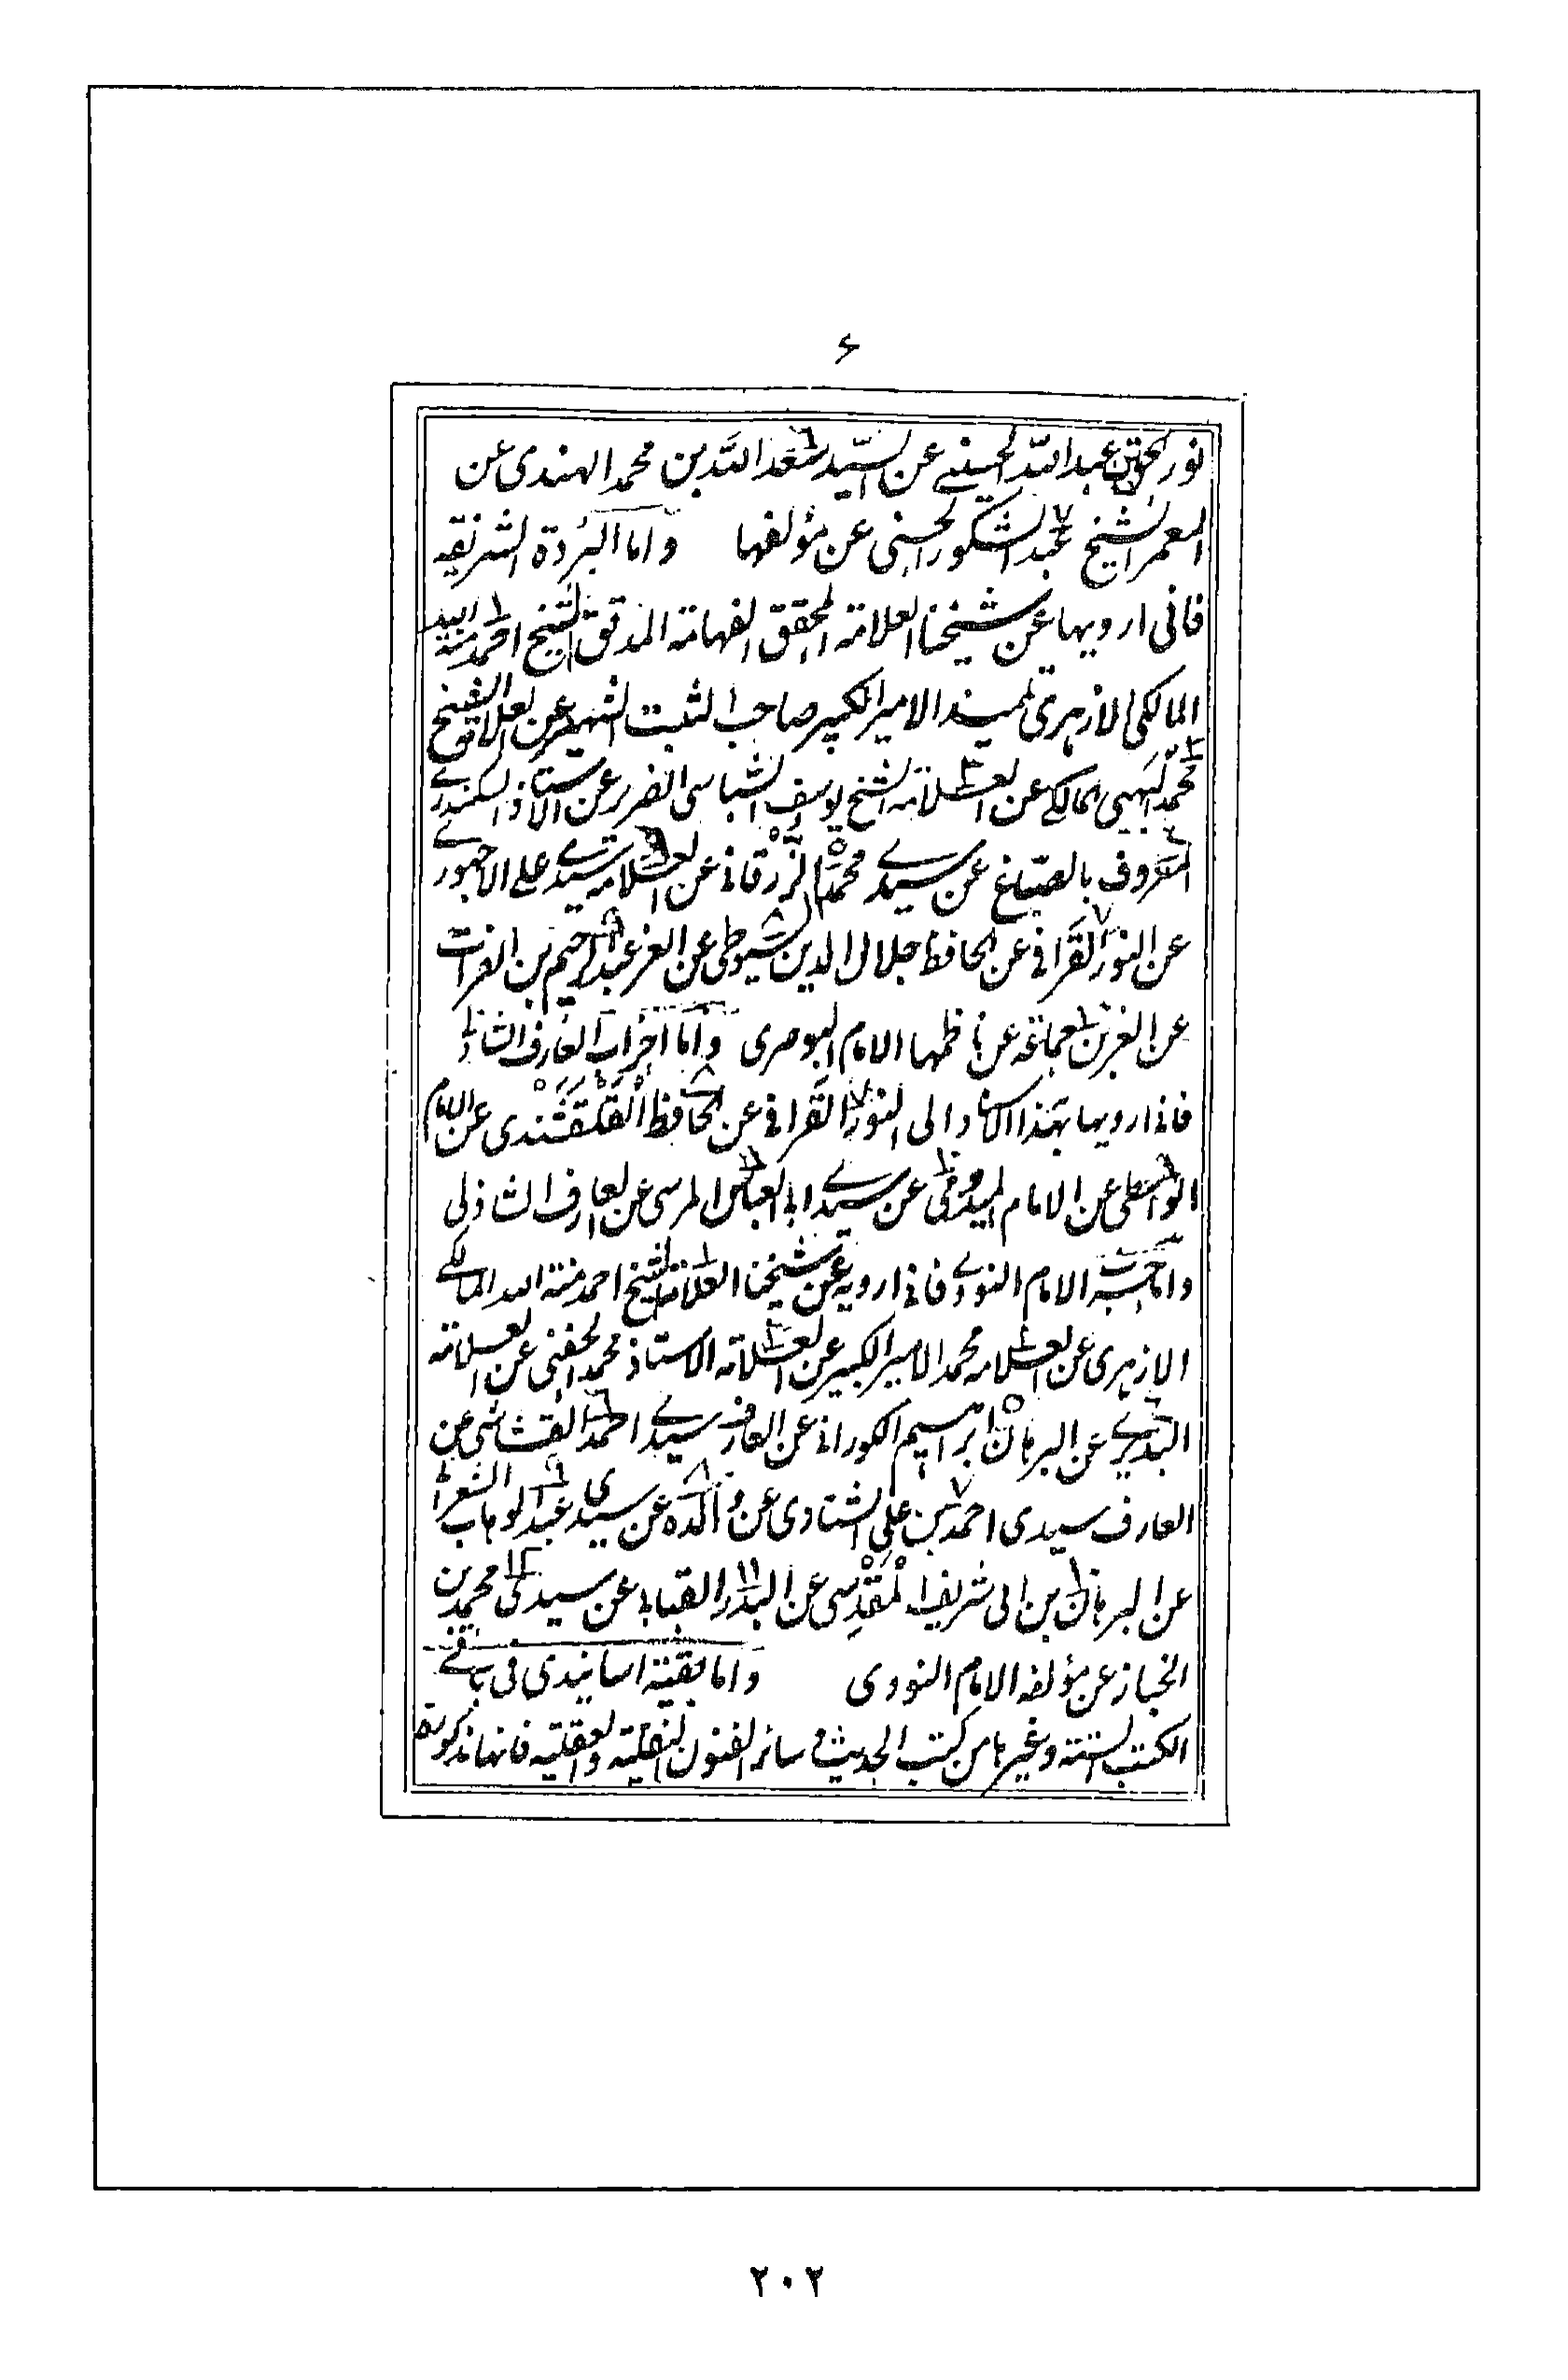 ۶
نور الحق بن عبد الله الحسيني عن السيد سعد الله بن محمد الهندي عن
المعمر الشيخ عبد الشكور الحسني عن مؤلفها واما البردة الشريفة
فاني ارويها عن شيخنا العلامة المحقق الفهامة المدقق الشيخ احمد منة الله
المالكي الازهري تلميذ الامير الكبير صاحب الثبت الشهير عن العلامة الشيخ
محمد البهي المالكي عن العلامة الشيخ يوسف الشباسي الضرير عن الاستاذ السكندرے
المعروف بالصباغ عن سيدے محمد الزرقاني عن العلامة سيدے علي الاجهورے
عن النور القرافي عن الحافظ جلال الدين السيوطي عن العز عبد الرحيم بن الفرات
عن العز بن جماعة عن ناظمها الامام البوصيري واما احزاب العارف الشاذلي
فاني ارويها بهذا الاسناد الى النور القرافي عن الحافظ القلقشندي عن الامام
الواسطي عن الامام الميدومي عن سيدے ابي العباس المرسي عن العارف الشاذلي
واما حزب الامام النووے فاني ارويه عن شيخنا العلامة الشيخ احمد منة الله المالكے
الازهري عن العلامه محمد الامير الكبير عن العلامة الاستاذ محمد الحفني عن العلامة
البديرے عن البرهان ابراهيم الكوراني عن العارف سيدے احمد القشاشي عن
العارف سيدي احمد بن علي الشناوي عن والده عن سيدي عبد الوهاب الشعراني
عن البرهان بن ابي شريف المقدسي عن البدر القبابي عن سيدي محمد بن
الخباز عن مؤلفه الامام النووي واما بقية اسانيدي في باقے
الكتب الستة وغيرها من كتب الحديث و سائر الفنون النقلية والعقلية فانها مذكورة
٢٠٢